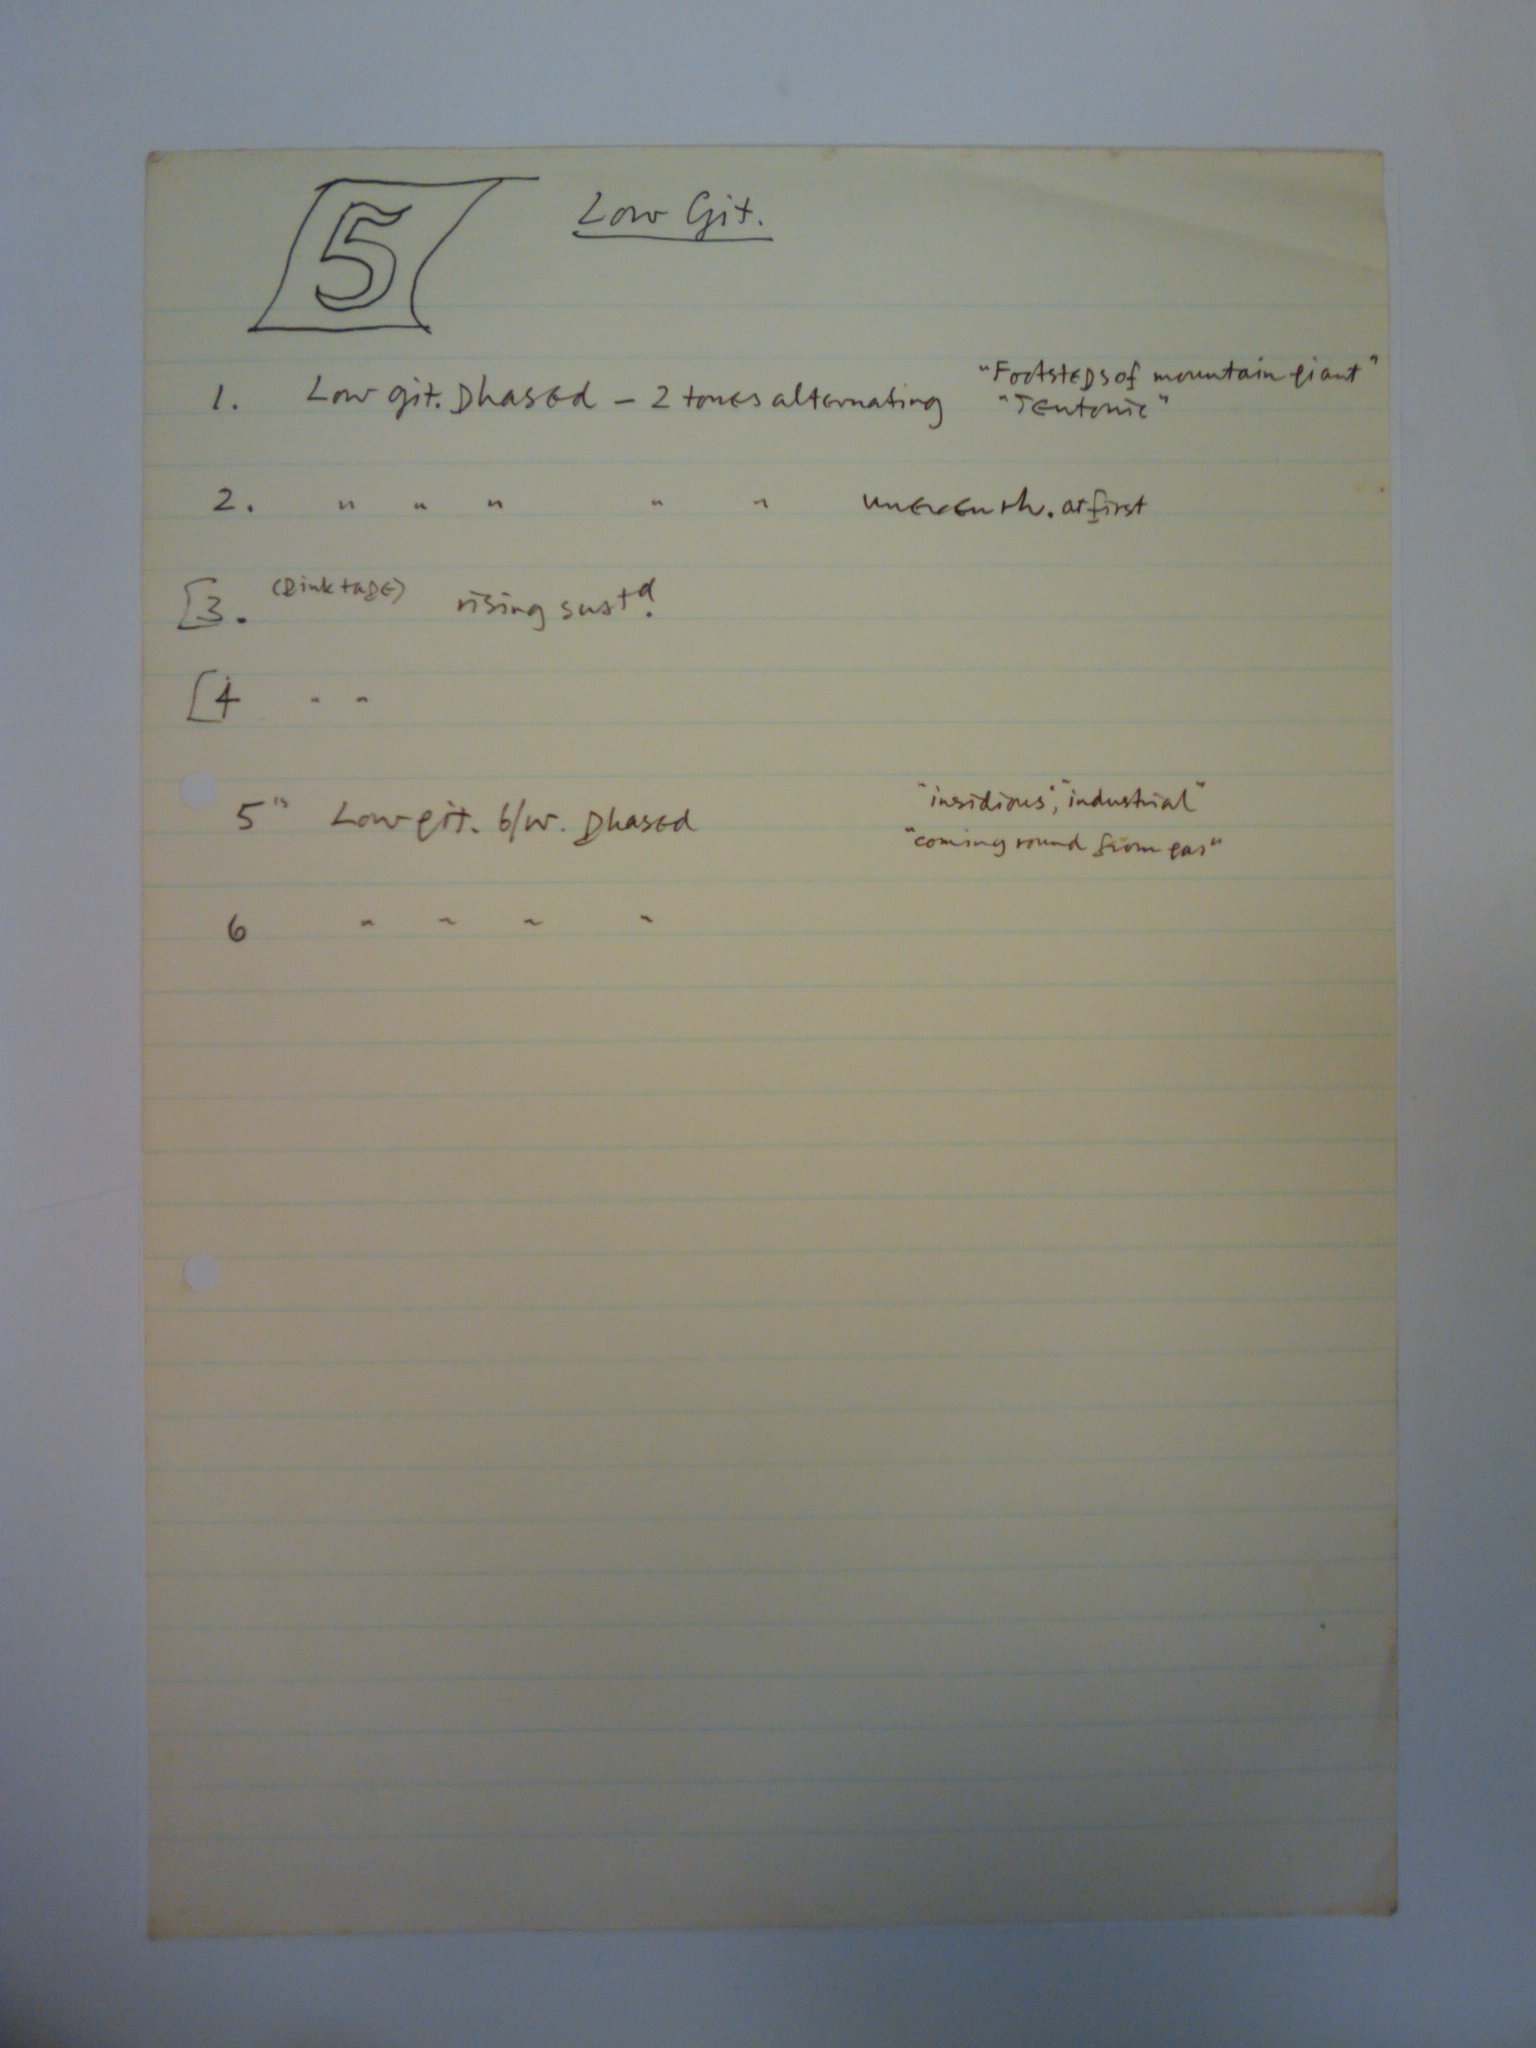 5 Low Git.
1. Low git. phased - 2 tones alternating "Footsteps of mountain giant"
"Teutonic"
2. " " " " " at first
[3. (pink tape) rising sust d.
[4 " "
5 " Low git. b/w. phased "insidious", "industrial"
"coming round from gas"
6 " " " "